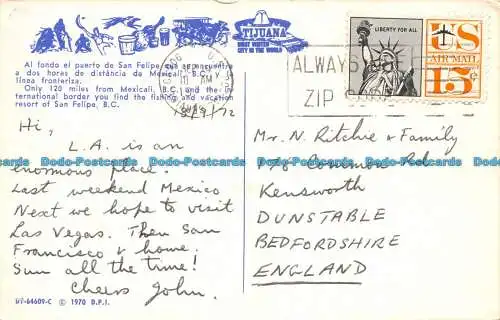 TIJUANA
MOST VISITED
CITY IN THE WORLD
LIBERTY FOR ALL
US
AIR MAIL
15¢
ALWAYS USE
ZIP
AM
Al fondo el puerto de San Felipe, que se encuentra
a dos horas de distancia de Mexicali, B.C., y la
línea fronteriza.
Only 120 miles from Mexicali, B.C. and the
international border you find the fishing and vacation
resort of San Felipe, B.C.
Hi,
L.A. is an
enormous place.
Last weekend Mexico
Next we hope to visit
Las Vegas. Then San
Francisco & home.
Sun all the time!
Cheers John.
Mr. N. Ritchie & Family
178 Common Rd
Kensworth
DUNSTABLE
BEDFORDSHIRE
ENGLAND
© 1970 D.P.I.
Dodo-Postcards